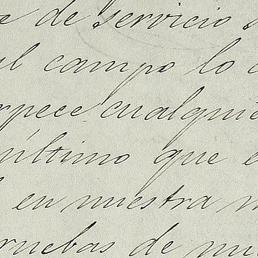 de servicio
campo lo
cualquie
último que e
en nuestra m
ruebas de mu